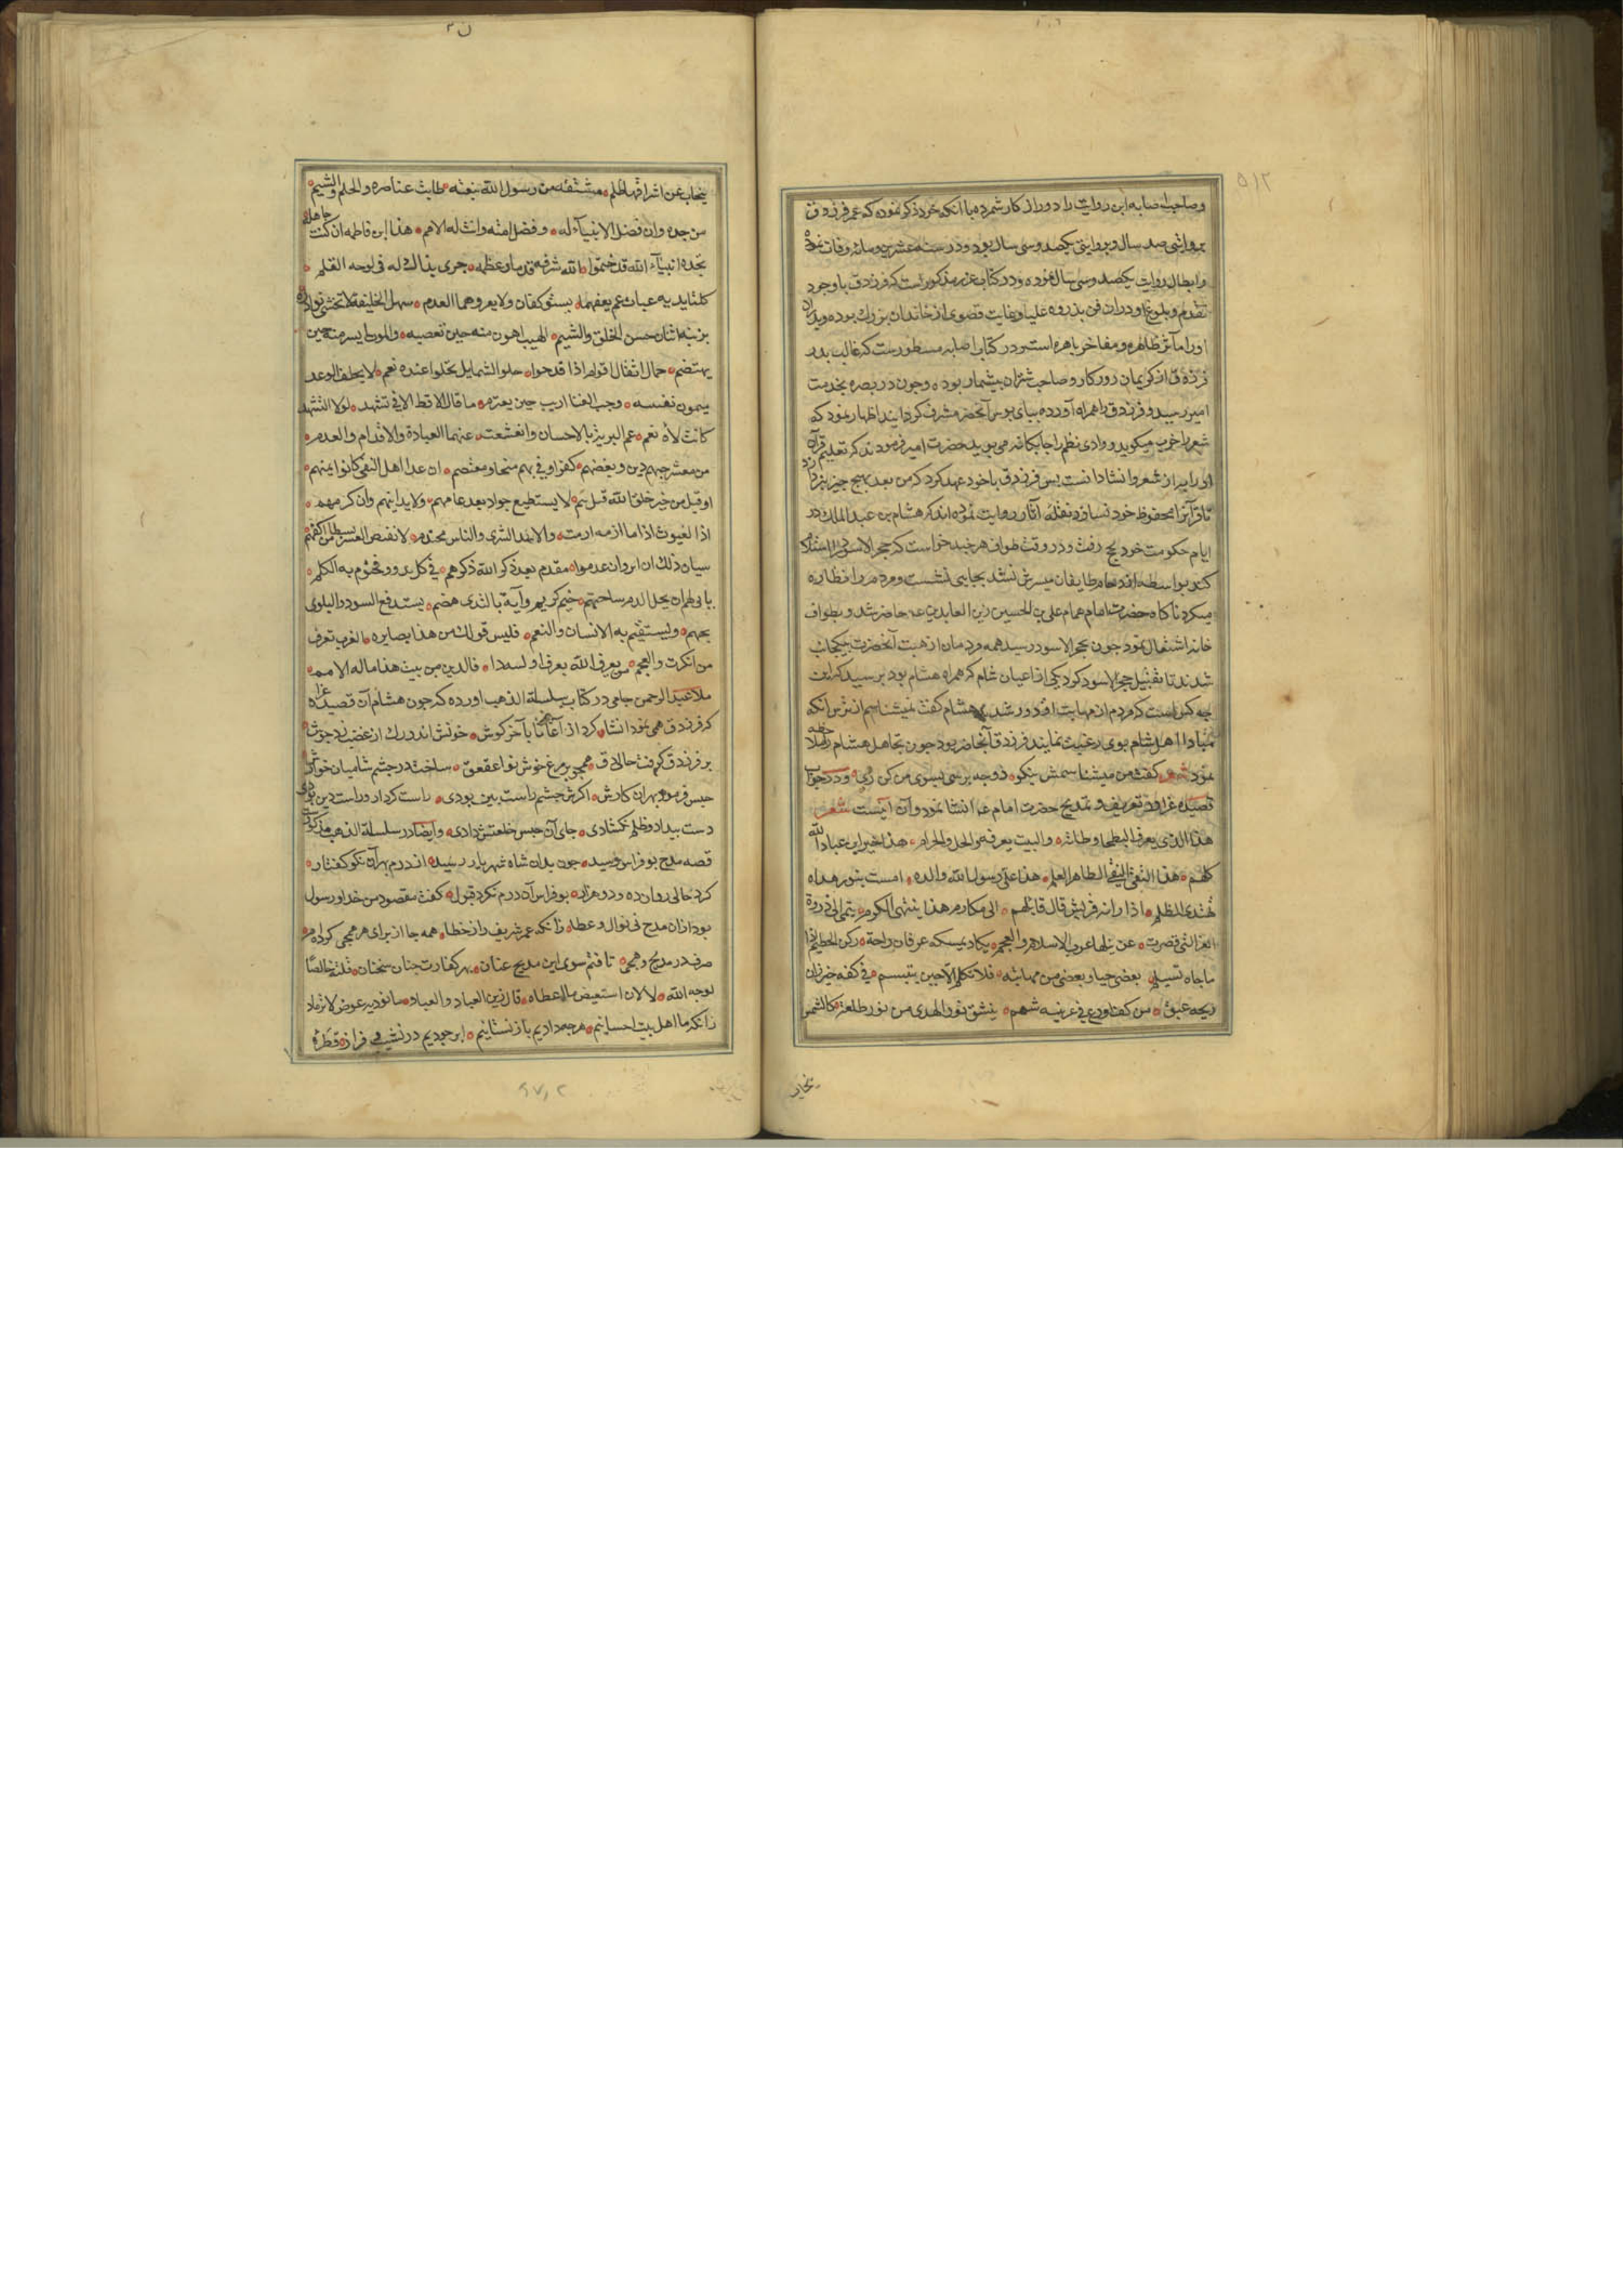 ۵۱۲
وصاحب اصابه این روایت را دور از کار شمرده با آنکه خود ذکر نموده که عمر فرزدق
بروایتی صد سال و بروایتی یکصد و سی سال بود و در سنه عشر و مائه وفات نموده
و ابطال روایت یکصد و سی سال نموده و در کتاب غرر مذکور است که فرزدق باوجود
تقدم و بلوغ او در ان فن بذروه علیا و غایت قصوی از خاندان بزرک بوده و پدران
او را مآثر ظاهره و مفاخر باهره است و در کتاب اصابه مسطورست که غالب پدر
فرزدق از کریمان روزکار و صاحب شتران بیشمار بوده و چون در بصره بخدمت
امیر رسید و فرزدق را همراه آورده بپای بوس آنحضرت مشرف کردانید اظهار نمود که
شعر را خوب میکوید و وادی نظم را چابکانه می پوید حضرت امیر فرمودند که تعلیم قرآن
او را بهتر از شعر و انشاد انست پس فرزدق با خود عهد کرد که من بعد بهیچ چیز نپردازد
تا قرآنرا محفوظ خود نسازد و نقله آثار روایت نموده اند که هشام بن عبد الملک در
ایام حکومت خود بحج رفت و در وقت طواف هر چند خواست که حجر الاسود را استلام
کند بواسطه ازدحام طایفان میسرش نشد بجایی نشست و مردم را نظاره
میکرد ناکاه حضرت امام همام علی بن الحسین زین العابدین ع حاضر شد و بطواف
خانه اشتغال نمود چون بحجر الاسود رسید همه مردمان از هیبت آنحضرت بیکجانب
شدند تا تقبیل حجر الاسود کرد یکی از اعیان شام که همراه هشام بود پرسید که این
چه کس است که مردم از مهابت او دور شدند هشام کفت نمیشناسم از ترس انکه
مبادا اهل شام بوی رغبت نمایند فرزدق آنجا حاضر بود چون تجاهل هشام را ملاحظه
نمود شعر کفت من میشناسمش نیکو زو چه پرسی بسوی من کن رو و در جواب
قصیده غرا در تعریف و مدیح حضرت امام ع انشا نمود و آن اینست شعر
هذا الذی یعرف البطحا وطاته والبیت یعرفه والحل والحرم هذا ابن خیر عباد الله
کلهم هذا التقی النقی الطاهر العلم هذا علی رسول الله والده امست بنور هداه
تهتدی الظلم اذا راته قریش قال قائلهم الی مکارم هذا ینتهی الکرم ینمی الی ذروة
العز التی قصرت عن نیلها عرب الاسلام والعجم یکاد یمسکه عرفان راحته رکن الحطیم اذا
ماجاء یستلم یغضی حیاء ویغضی من مهابته فلا یکلم الا حین یبتسم فی کفه خیزران
ریحه عبق من کف اروع فی عرنینه شمم ینشق نور الهدی من نور طلعته کالشمس
ینجاب
ینجاب عن اشراقها الظلم مشتقة من رسول الله نبعته طابت عناصره والحلم والشیم
من جده وان فضل الانبیآء له وفضل امته دانت له الامم هذا ابن فاطمه ان کنت جاهله
بجده انبیآء الله قد ختموا الله شرفه قدما وعظمه جری بذاک له فی لوحه القلم
کلتا یدیه غیاث عم نفعهما یستوکفان ولا یعروهما العدم سهل الخلیقة لا تخشی بوادره
یزینه اثنان حسن الخلق والشیم
حمال اثقال اقوام اذا فدحوا حلو الشمایل تحلوا عنده نعم لا یخلف الوعد
میمون نقیبته رحب الفنا اریب حین یعتزم ما قال لا قط الا فی تشهد لولا التشهد
کانت لاؤه نعم عم البریة بالاحسان وانقشعت عنها
من معشر حبهم دین وبغضهم کفر وقربهم منجا ومعتصم ان عد اهل التقی کانوا ائمتهم
او قیل من خیر خلق الله قیل هم لا یستطیع جواد بعد غایتهم ولا یدانیهم قوم وان کرموا
لا ینقص العسر بسطا من اکفهم
سیان ذلک ان اثروا وان عدموا مقدم بعد ذکر الله ذکرهم فی کل بدو ومختوم به الکلم
یابی لهم ان یحل الذم ساحتهم خیم کریم واید بالندی هضم یستدفع السوء والبلوی
بحبهم فلیس قولک من هذا بضایره العرب تعرف
من انکرت والعجم من یعرف الله یعرف اولیة ذا فالدین من بیت هذا ناله الامم
ملا عبد الرحمن جامی در کتاب سلسلة الذهب اورده که چون هشام آن قصیده غرا
که فرزدق همی نمود انشا کرد از آغاز تا بآخر کوش خونش اندر رک از غضب زد جوش
بر فرزدق کرفت حالی دق همچو بر مرغ خوش نوا عقعق ساخت در چشم شامیان خوارش
حبس فرمود بهر ان کارش اکرش چشم راست بین بودی راست کردار و راست دین بودی
دست بیداد و ظلم نکشادی جای آن حبس خلعتش دادی وایضا در سلسلة الذهب مذکورست
قصه مدح بوفراس رشید چون بدان شاه
کرد حالی روان ده و دو هزار بوفراس آن درم نکرد قبول کفت مقصود من خدا و رسول
بود از ان مدح نی نوال و عطا زانکه عمر شریف را ز خطا همه جا از برای هر همجی کرده ام
صرف در مدیح و هجی تافتم سوی این مدیح عنان بهر کفارت چنان سخنان قلته خالصا
لوجه الله لا لان استعیض ما اعطاه قال زین العباد والعباد ما نودیه عوض لا نرتد
زانکه ما اهل بیت احسانیم هرچه دادیم باز نستانیم ابر جودیم در نشیب و فراز قطره